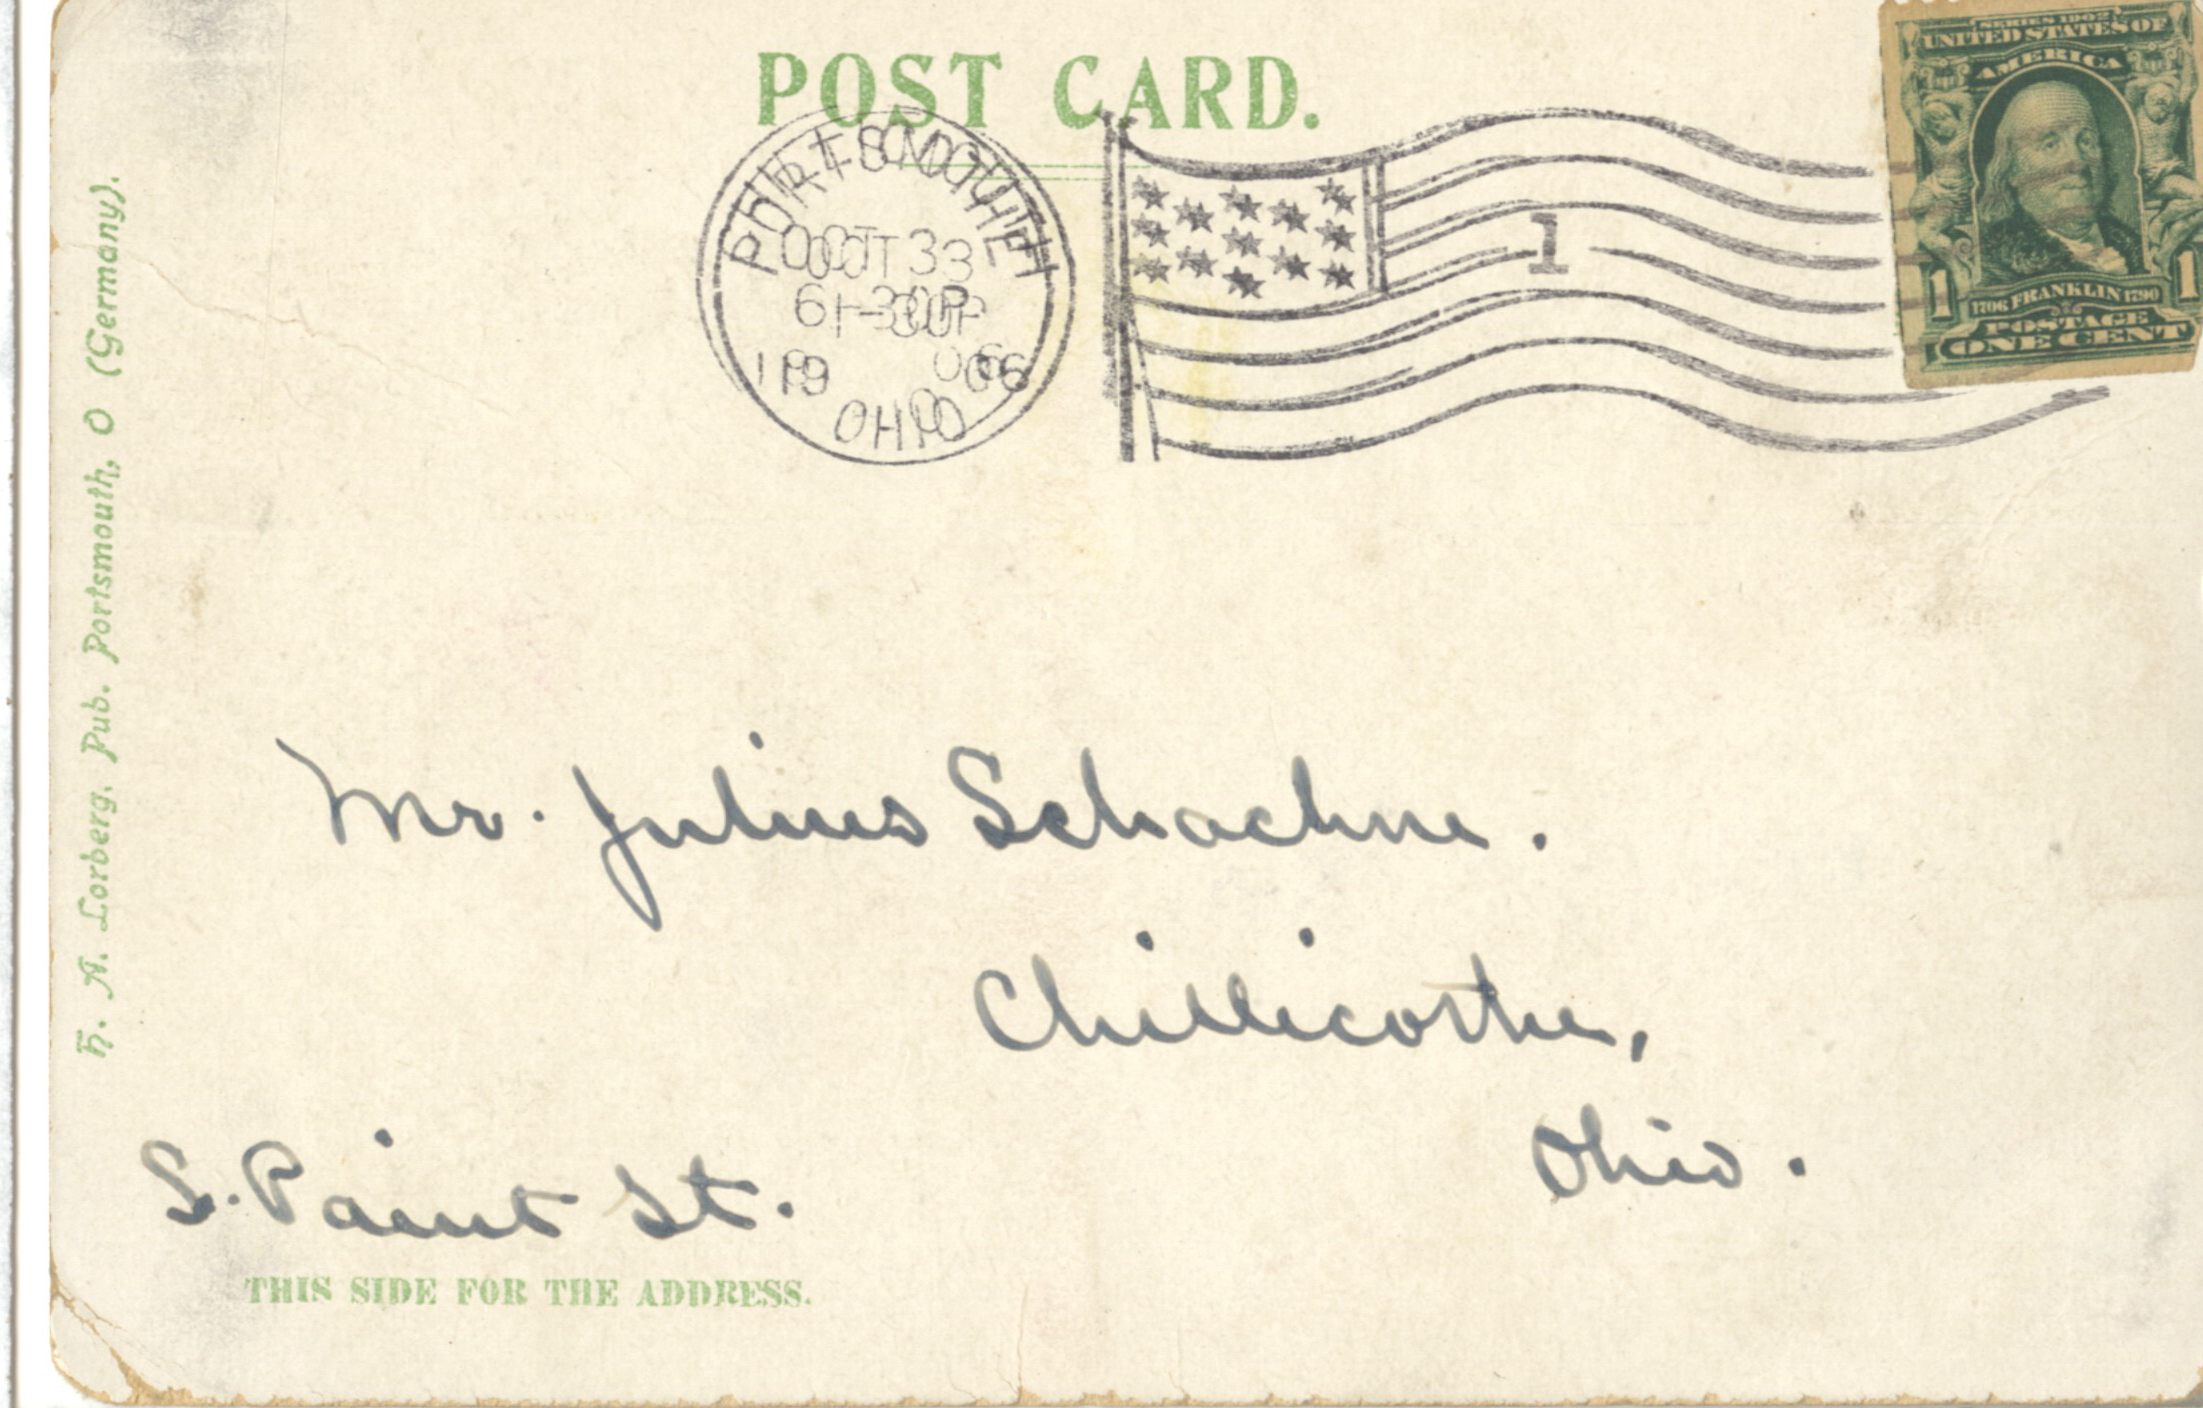 POST CARD.
PORTSMOUTH
OCT 3
6-30P
1906
OHIO
1
SERIES 1902
UNITED STATES OF
AMERICA
1 1
1706 FRANKLIN 1790
POSTAGE
ONE CENT
H. A. Lorberg, Pub. Portsmouth, O (Germany).
Mr. Julius Schachne.
Chillicothe,
Ohio.
S. Paint St.
THIS SIDE FOR THE ADDRESS.